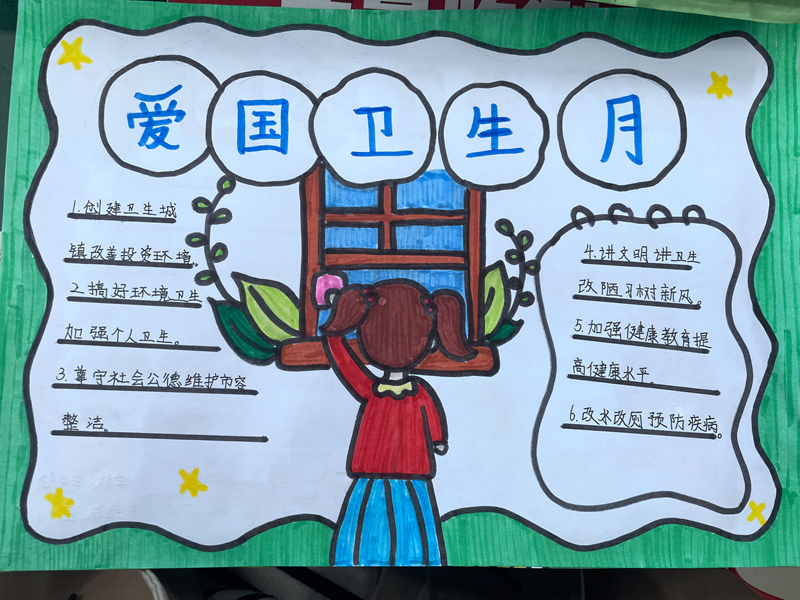 爱国卫生月
1.创建卫生城
镇改善投资环境。
2.搞好环境卫生
加强个人卫生。
3.尊守社会公德维护市容
整洁。
4.讲文明讲卫生
改陋习树新风。
5.加强健康教育提
高健康水平。
6.改水改厕预防疾病。